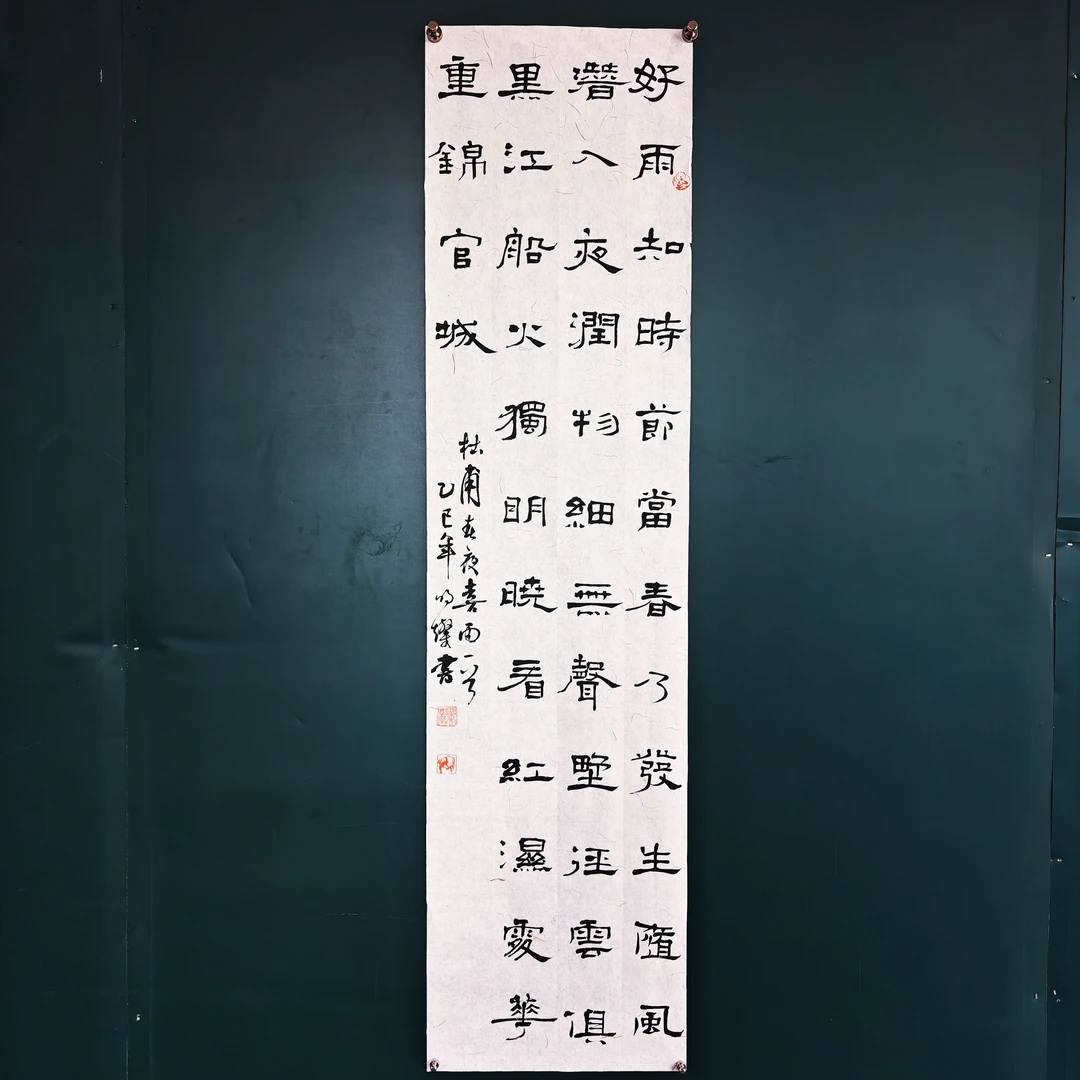 好雨知時節當春乃發生隨風
潛入夜潤物細無聲野徑雲俱
黑江船火獨明曉看紅濕處華
重錦官城
杜甫春夜喜雨一首
乙巳年明燦書